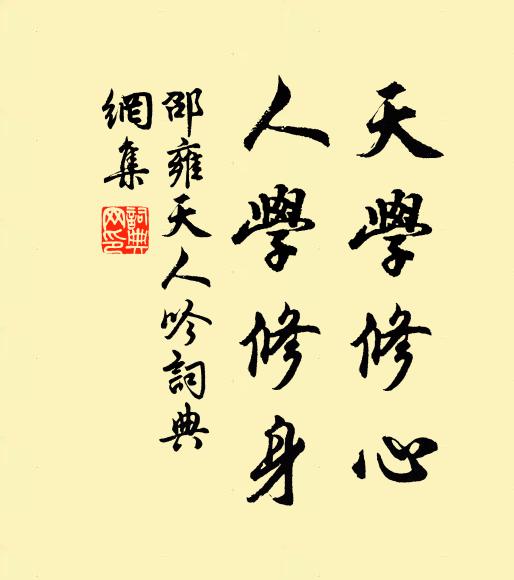 天學修心
人學修身
邵雍天人吟詞典
網集
詞典
网印